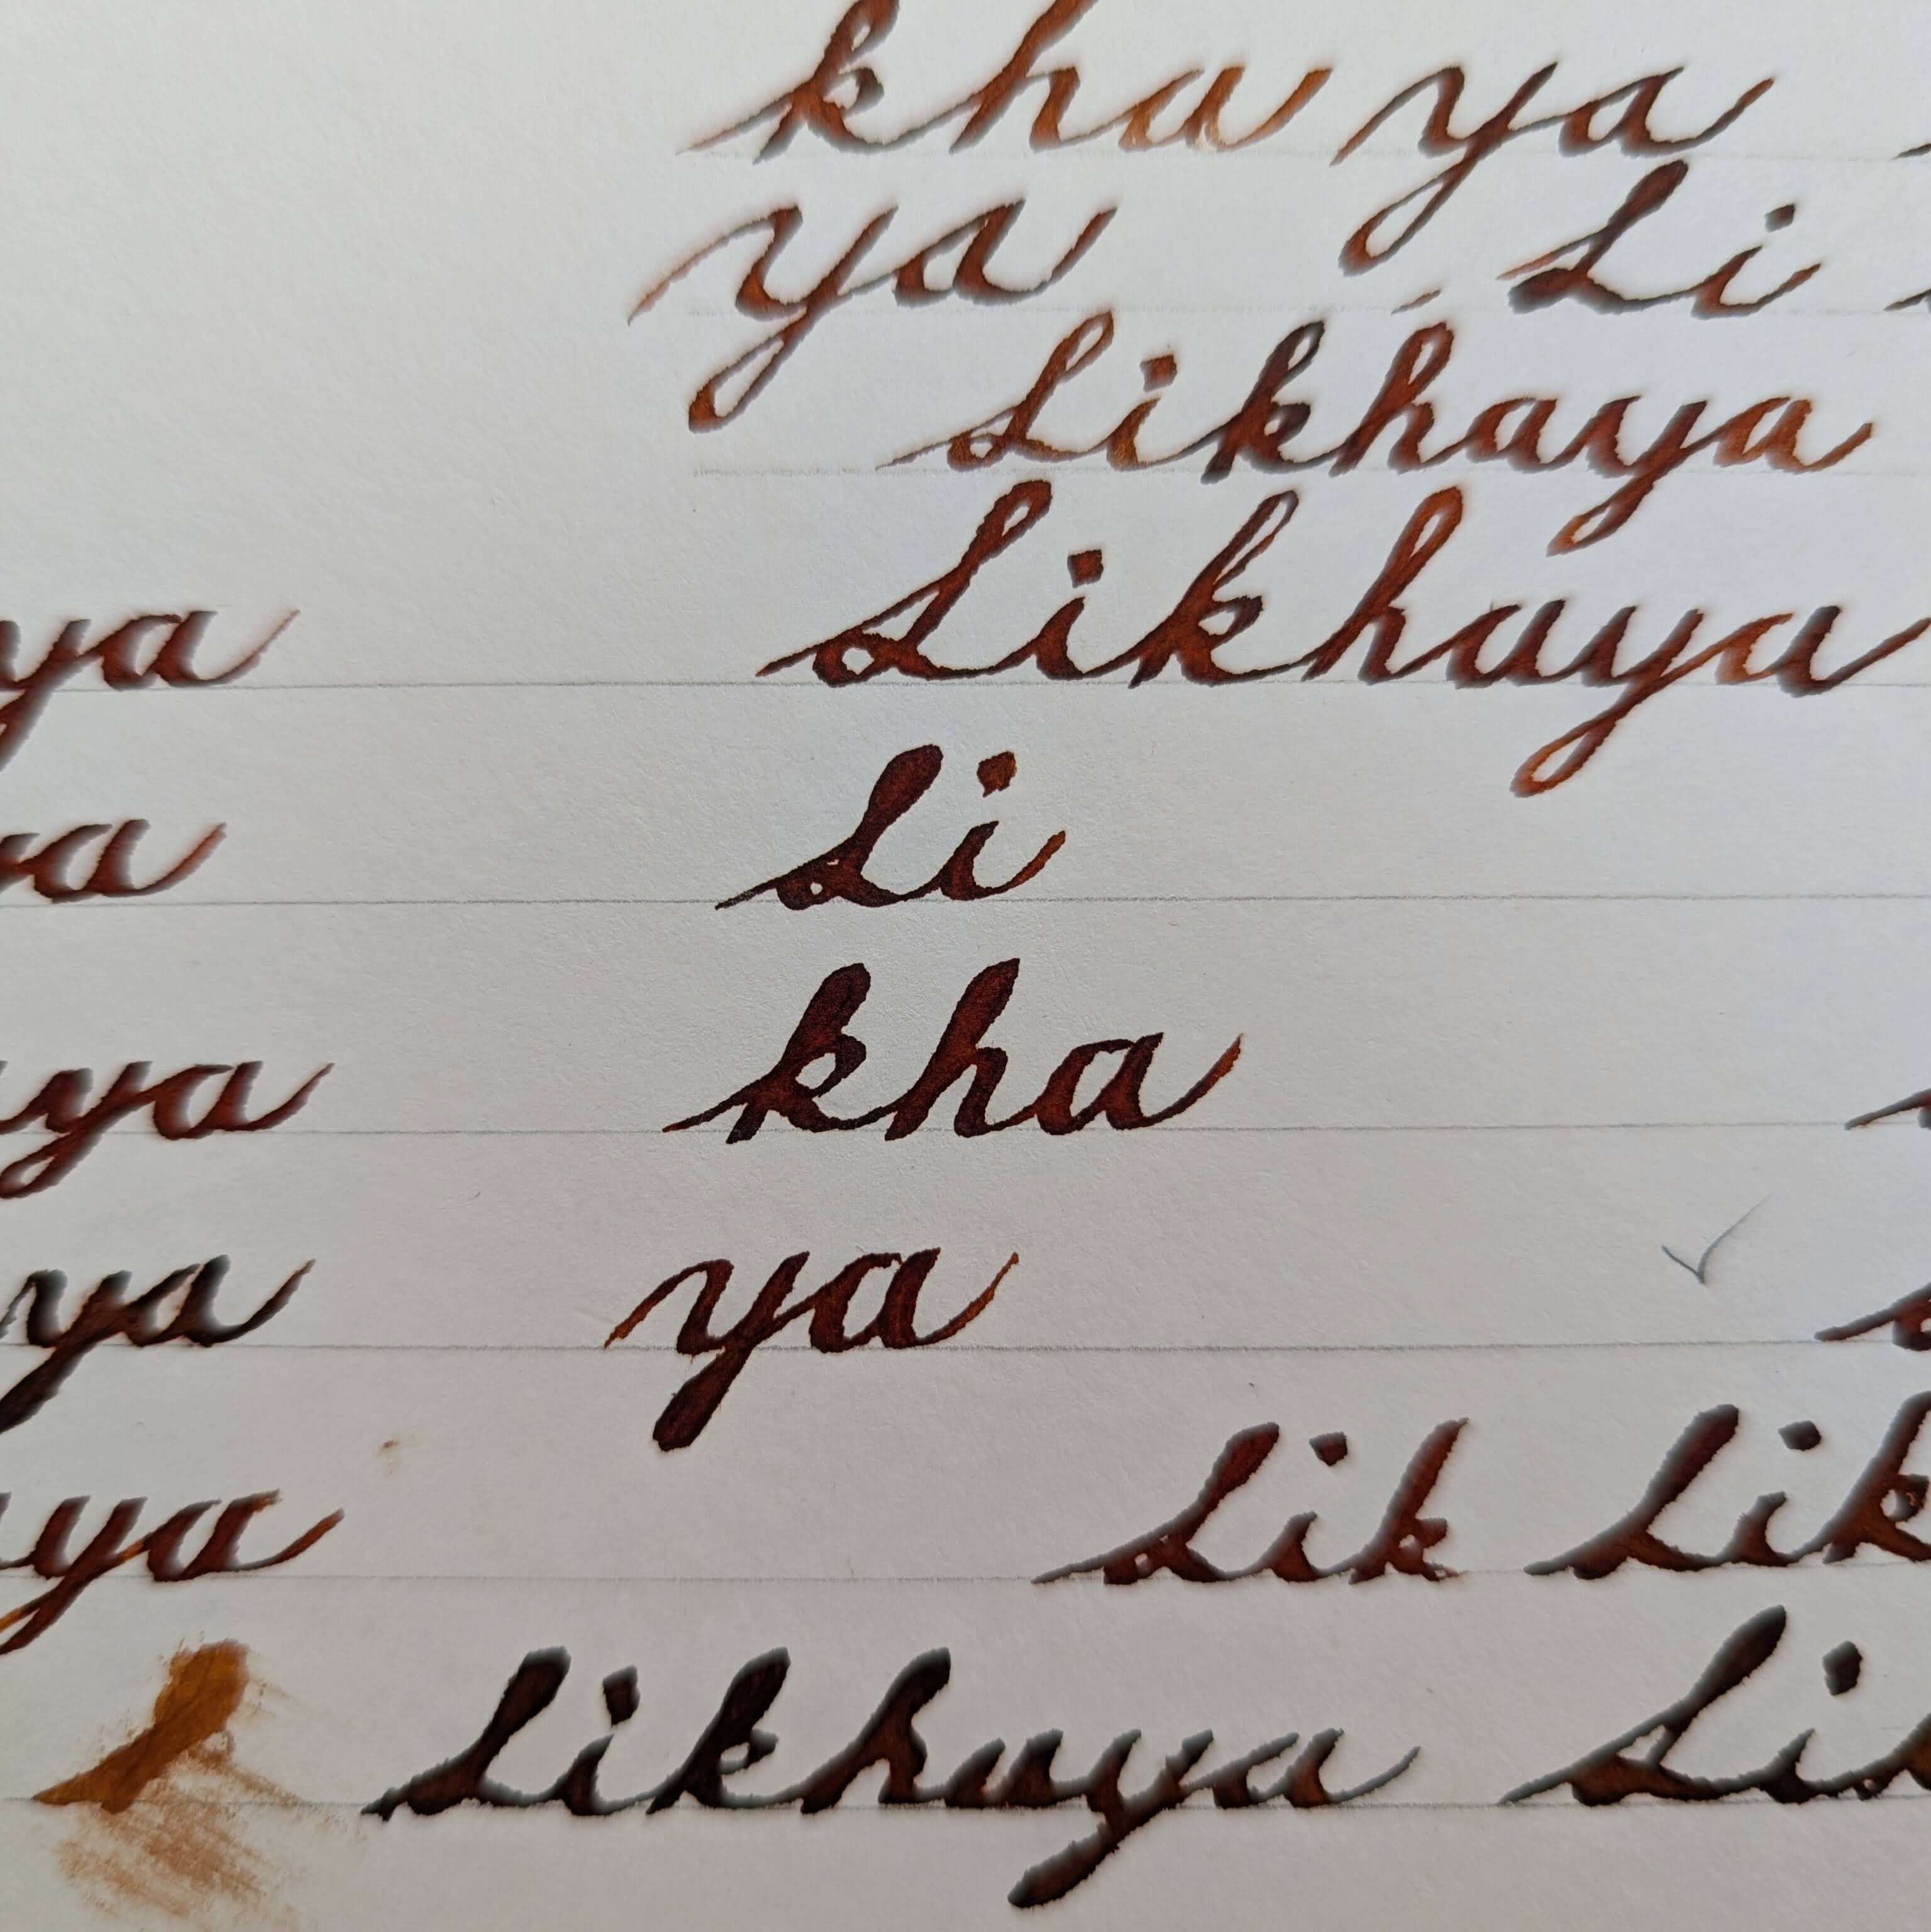 kha ya
ya Li
Likhaya
ya Likhaya
ya Li
ya kha
ya ya
ya Lik Lik
Likhaya Li